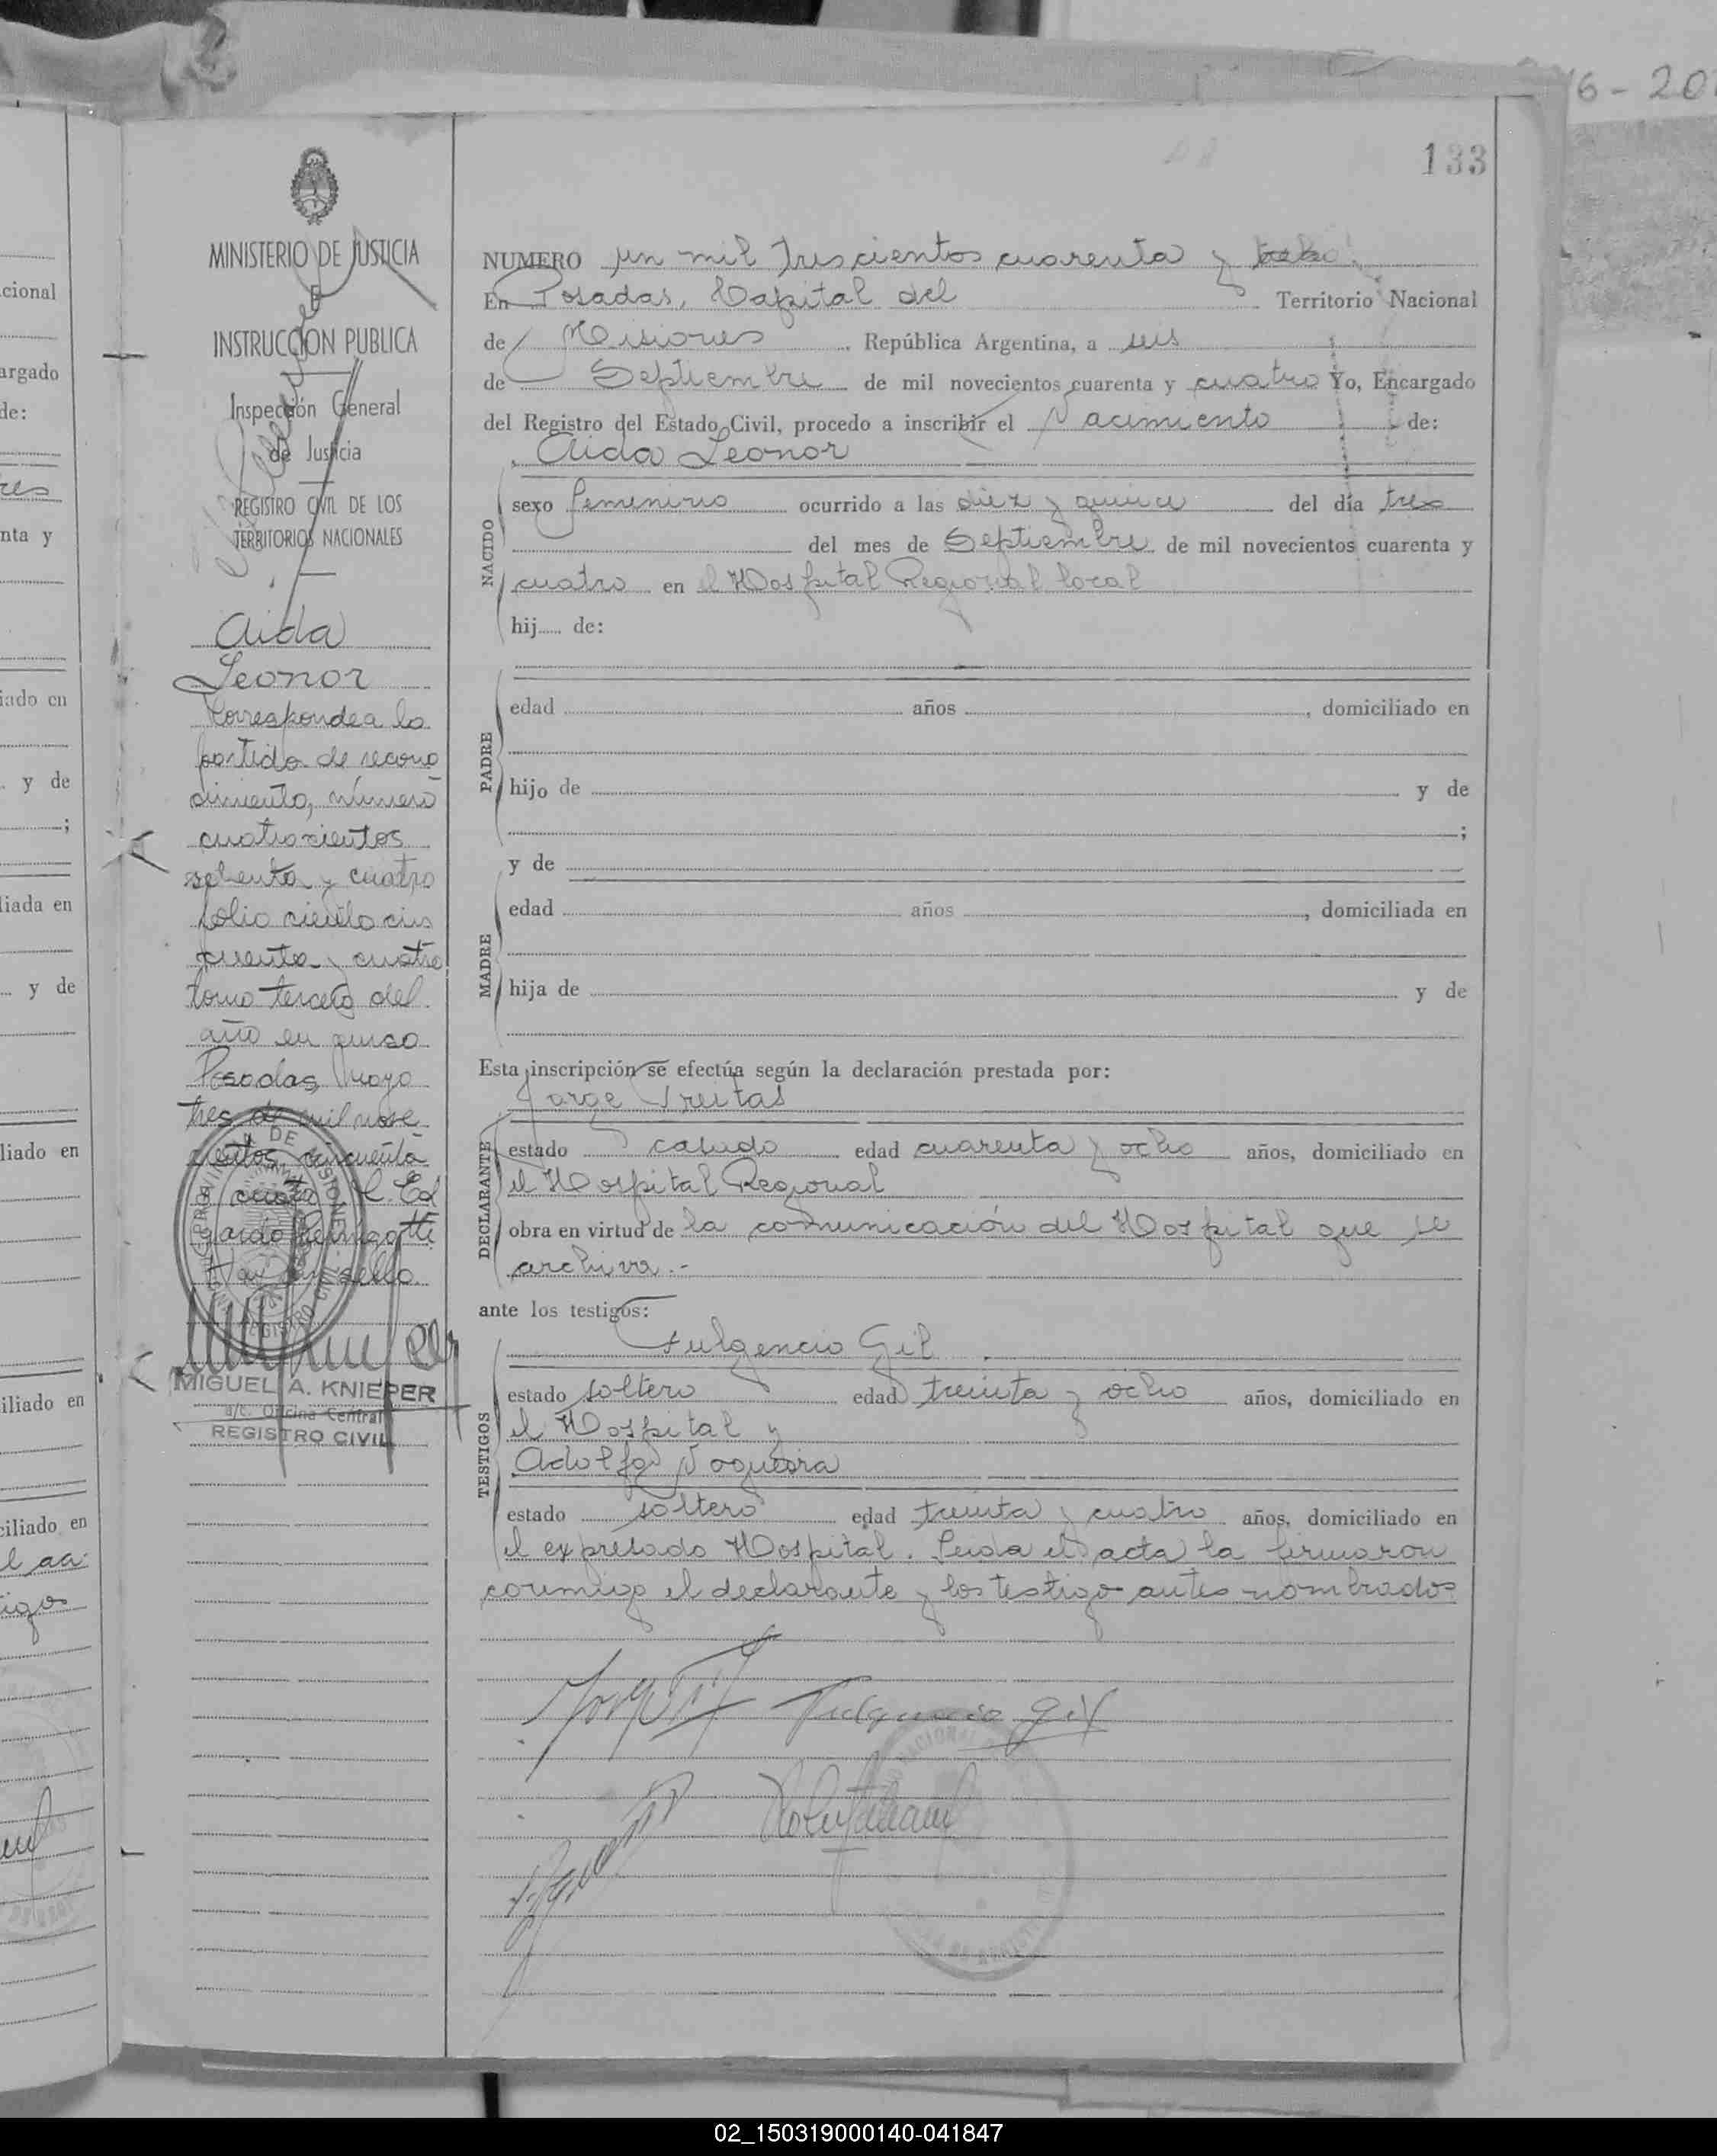 6 - 20
133
MINISTERIO DE JUSTICIA
E
INSTRUCCION PUBLICA
Inspección General
de Justicia
REGISTRO CIVIL DE LOS
TERRITORIOS NACIONALES
Aida
Leonor
Corresponde a la
partida de recono
cimiento, número
cuatrocientos
setenta y cuatro
folio ciento cin
cuenta y cuatro
tomo tercero del
año en curso
Posadas, Mayo
tres de mil nove
cientos cincuenta
cuatro
sello.
MIGUEL A. KNIEPER
a/c. Oficina Central
REGISTRO CIVIL
NUMERO un mil trescientos cuarenta y ocho
En Posadas, Capital del Territorio Nacional
de Misiones República Argentina, a seis
de Septiembre de mil novecientos cuarenta y cuatro Yo, Encargado
del Registro del Estado Civil, procedo a inscribir el Nacimiento de:
Aida Leonor
NACIDO
sexo femenino ocurrido a las diez y quince del día tres
del mes de Septiembre de mil novecientos cuarenta y
cuatro en el Hospital Regional local
hij de:
PADRE
edad años , domiciliado en
hijo de y de
;
y de
MADRE
edad años , domiciliada en
hija de y de
Esta inscripción se efectúa según la declaración prestada por:
Jorge Freitas
DECLARANTE
estado casado edad cuarenta y ocho años, domiciliado en
el Hospital Regional
obra en virtud de la comunicación del Hospital que se
archiva.-
ante los testigos:
Fulgencio Gil
TESTIGOS
estado soltero edad treinta y ocho años, domiciliado en
el Hospital y
Adolfo Nogueira
estado soltero edad treinta y cuatro años, domiciliado en
el expresado Hospital. Leida el acta la firmaron
conmigo el declarante y los testigo antes nombrados
Fulgencio Gil
02_150319000140-041847